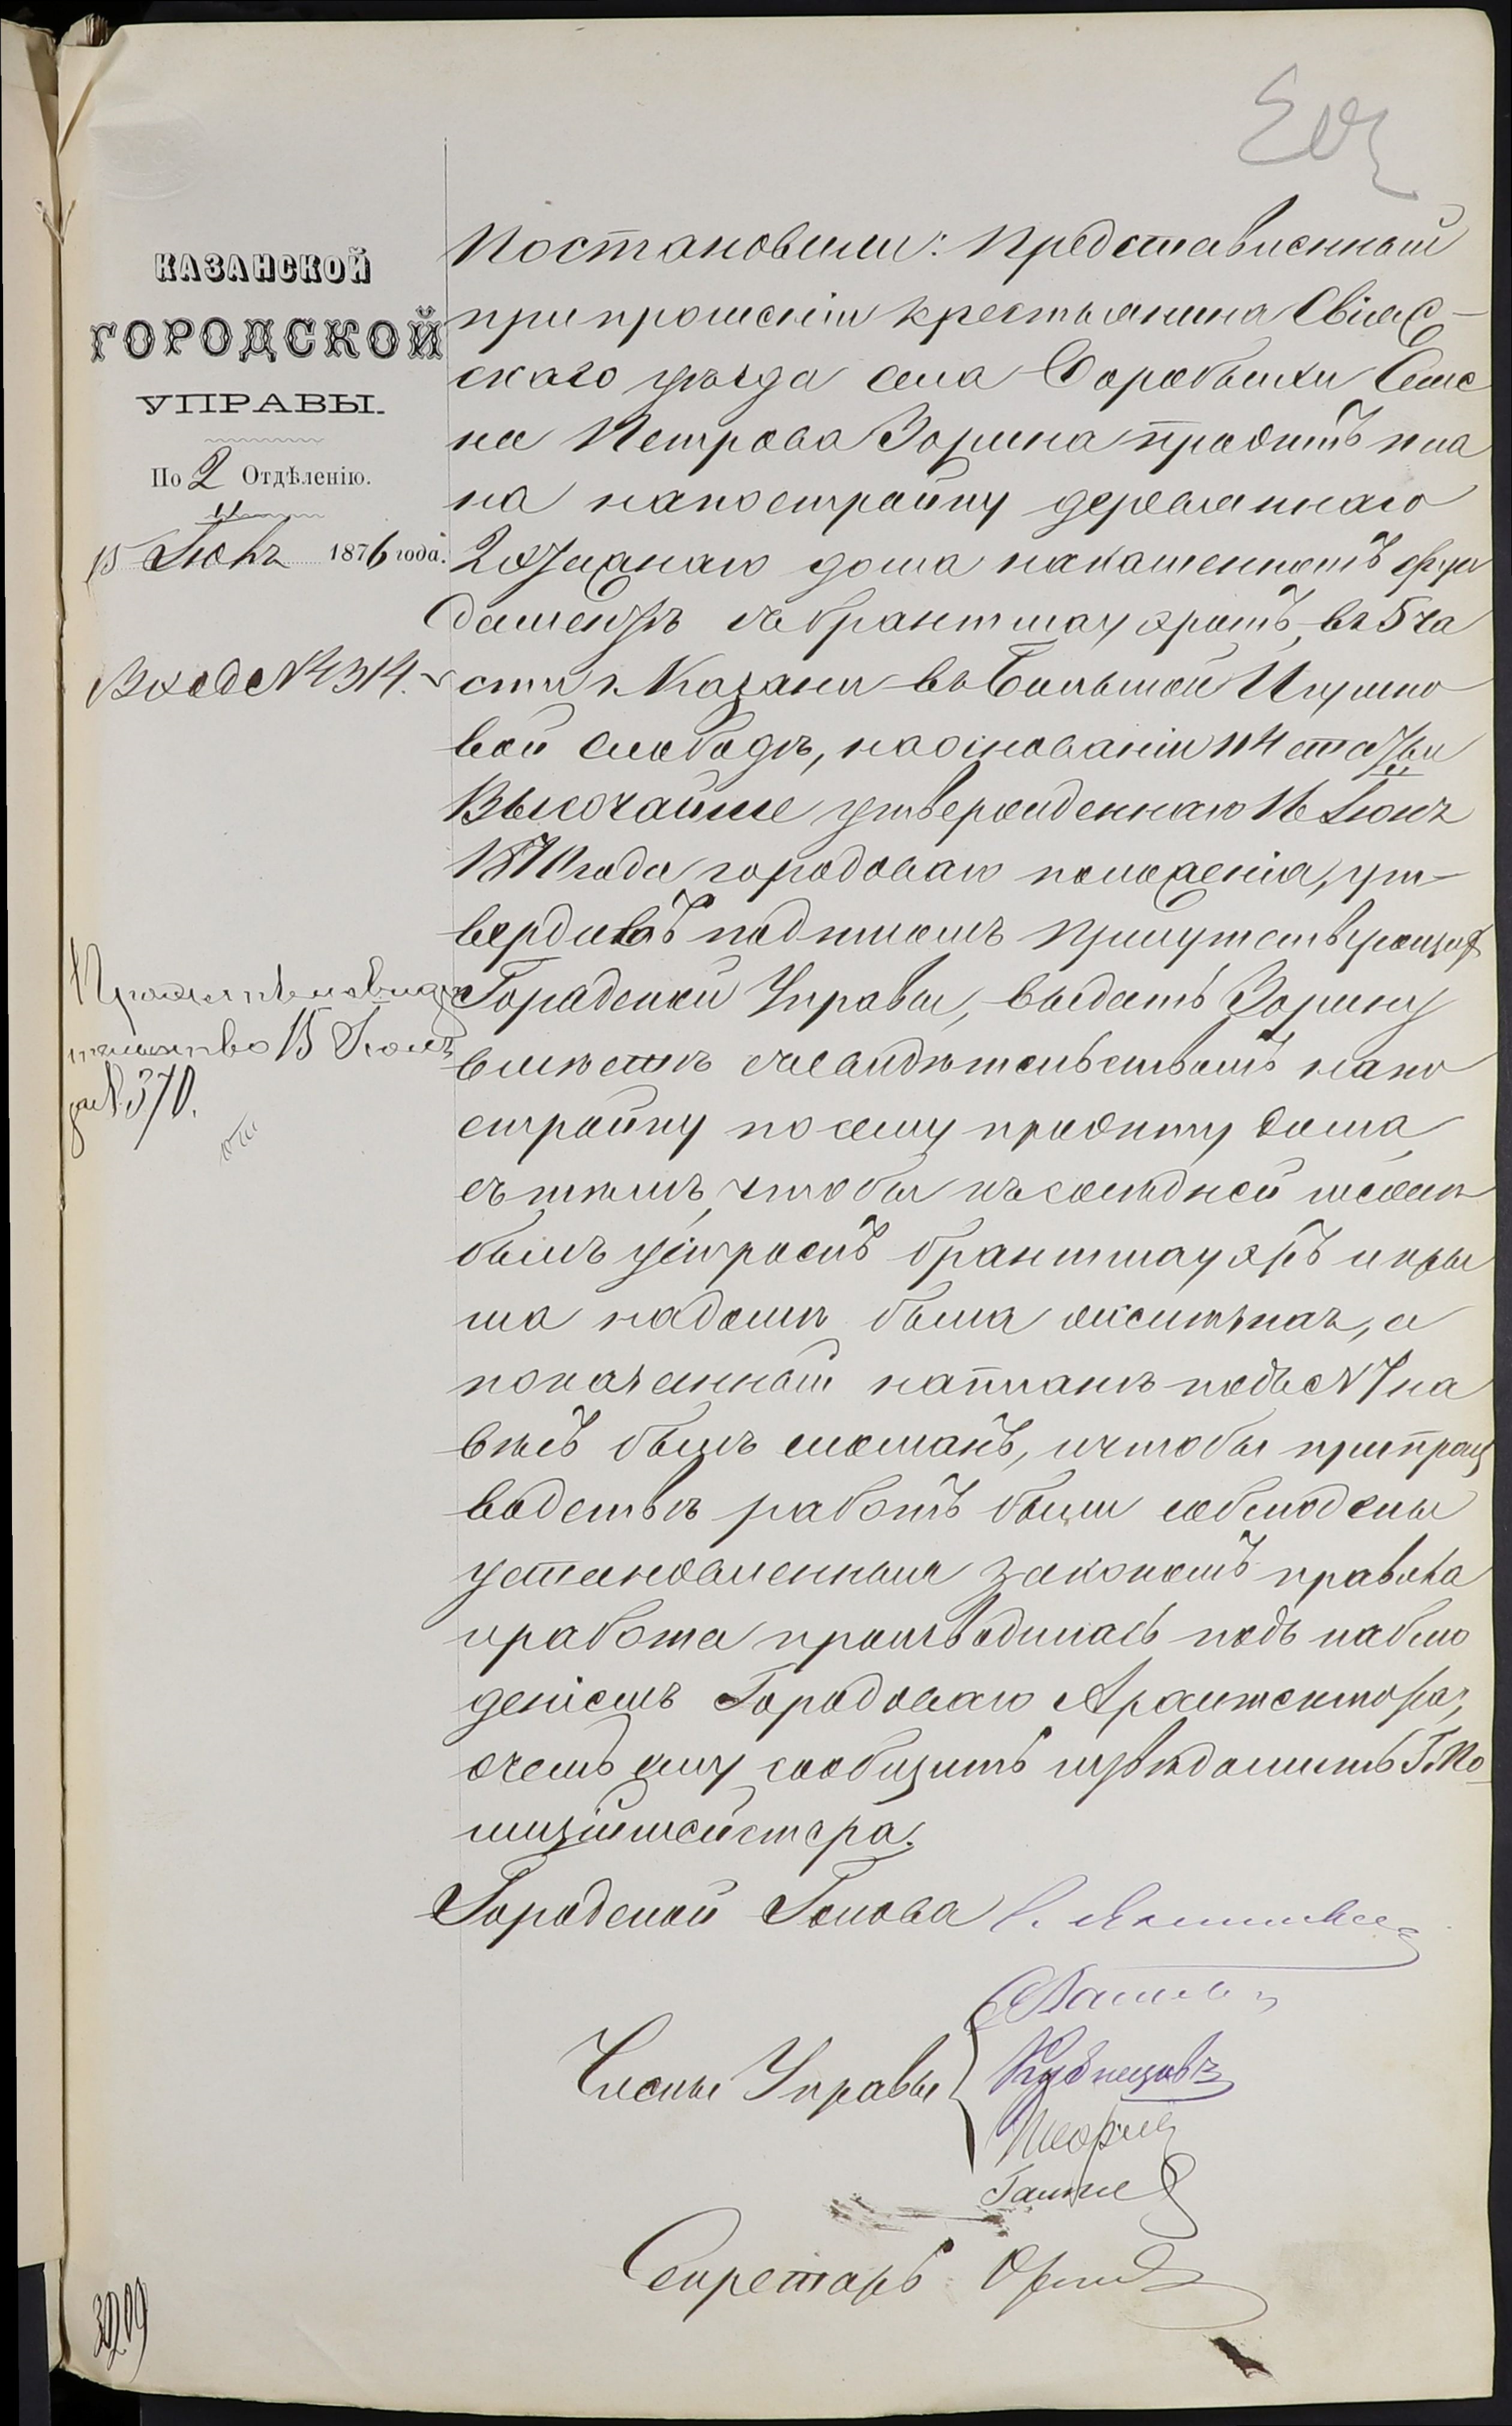 КАЗАНСКОЙ
ГОРОДСКОЙ
УПРАВЫ.
По 2 Отдѣленію.
15 Іюня 1876 года.
Входе № 4314.
свидѣ
тельство 15 Іюля
за № 370.
Постановили: Представленный
при прошеніи крестьянина Свіяж-
скаго уѣзда села Семе
на Петрова Зорина проэктъ пла
на на постройку деревяннаго
2 этажнаго дома на каменномъ фун
даментѣ съ брантмауэромъ, въ 5 ча
сти г. Казани въ Большой Игумно
вой слободѣ, на основаніи 114 статьи
Высочайше утвержденнаго 16 Іюня
1870 года городоваго положенія, ут-
вердивъ подписомъ Присутствующихъ
Городской Управы, выдать Зорину
вмѣстѣ съ свидѣтельствомъ на по
стройку по сему проэкту дома,
съ тѣмъ, чтобы къ сосѣдней межѣ
былъ устроенъ брантмауэръ и кры
ша на домѣ была желѣзная, а
показанный на планѣ подъ № 7 на
вѣсъ былъ сломанъ, и чтобы при произ
водствѣ работъ были соблюдены
установленныя закономъ правила
и работа производилась подъ наблю
деніемъ Городоваго Архитектора,
о чемъ ему сообщить и увѣдомить Г. По-
лиціймейстера.
Городской Голова
Члены Управы
Кузнецовъ
Секретарь
3209